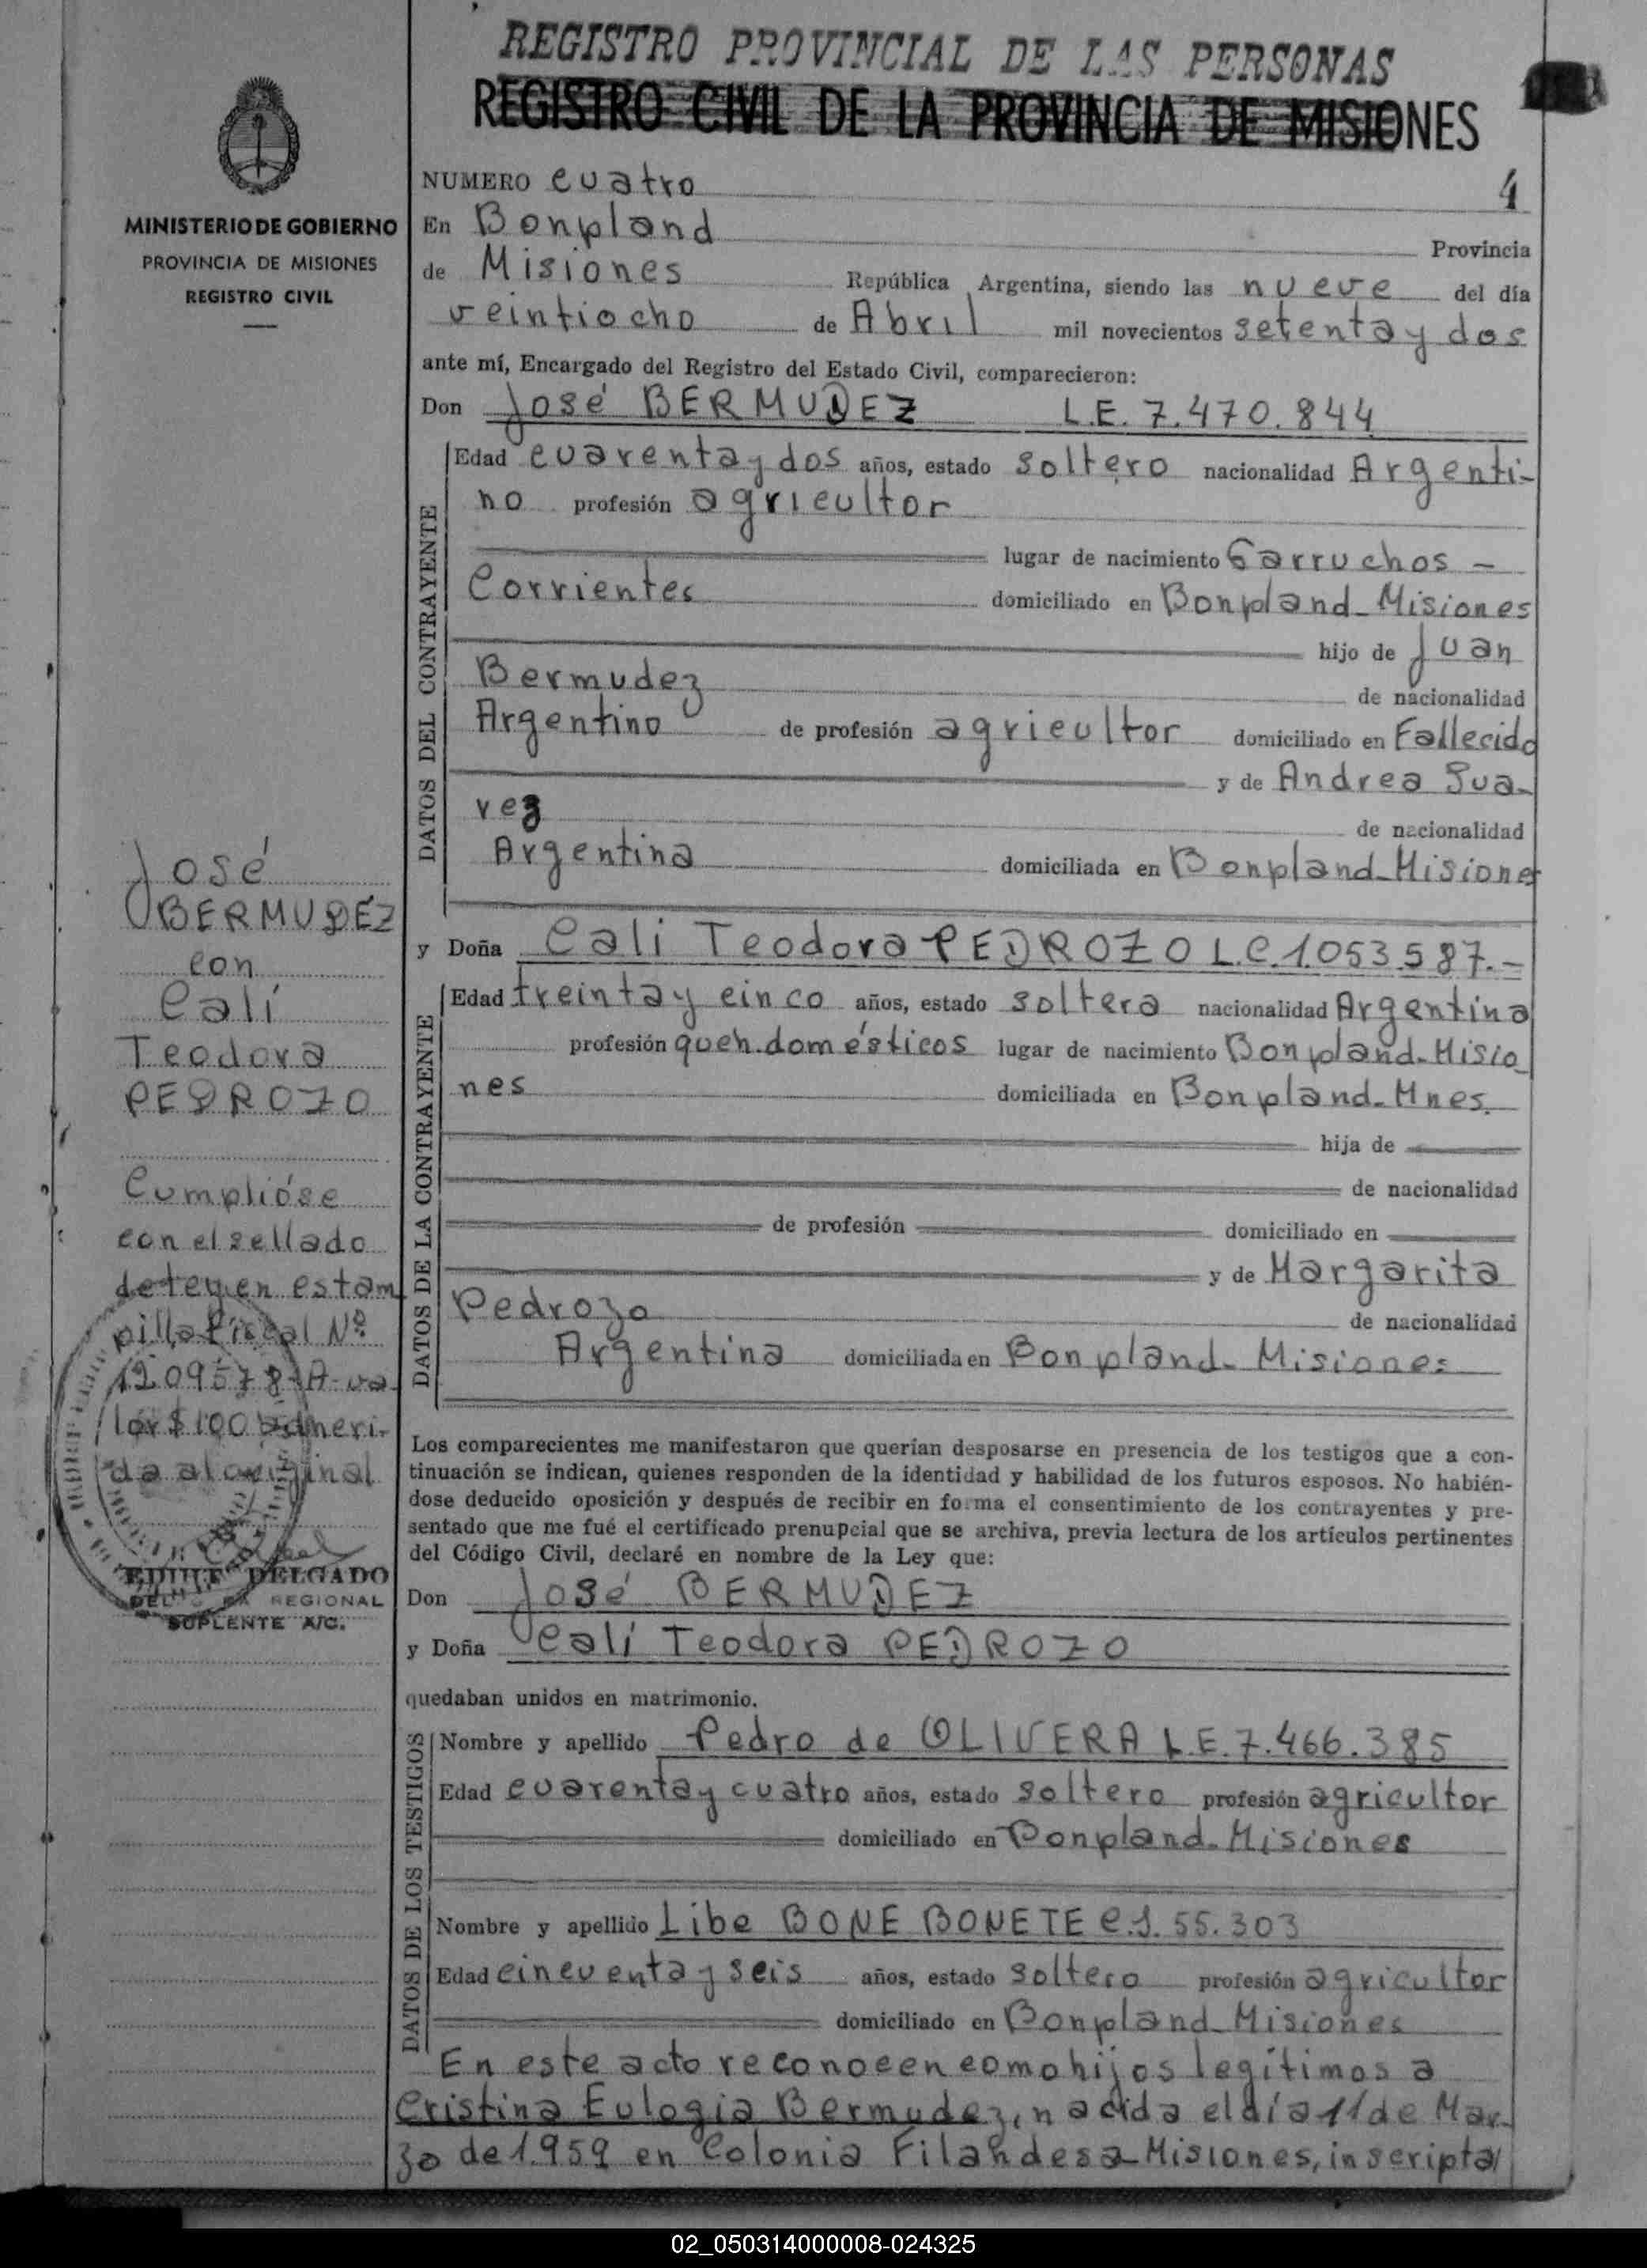 REGISTRO PROVINCIAL DE LAS PERSONAS
REGISTRO CIVIL DE LA PROVINCIA DE MISIONES
MINISTERIO DE GOBIERNO
PROVINCIA DE MISIONES
REGISTRO CIVIL
NUMERO cuatro 4
En Bonpland Provincia
de Misiones República Argentina, siendo las nueve del día
veintiocho de Abril mil novecientos setenta y dos
ante mí, Encargado del Registro del Estado Civil, comparecieron:
Don José BERMUDEZ L.E. 7.470.844
DATOS DEL CONTRAYENTE
Edad cuarenta y dos años, estado soltero nacionalidad Argenti-
no profesión agricultor
lugar de nacimiento Garruchos -
Corrientes domiciliado en Bonpland-Misiones
hijo de Juan
Bermudez de nacionalidad
Argentino de profesión agricultor domiciliado en Fallecido
y de Andrea Sua-
rez de nacionalidad
Argentina domiciliada en Bonpland-Misiones
y Doña Cali Teodora PEDROZO L.C.1.053.587.-
DATOS DE LA CONTRAYENTE
Edad treinta y cinco años, estado soltera nacionalidad Argentina
profesión queh.domésticos lugar de nacimiento Bonpland-Misio
nes domiciliada en Bonpland-Mnes.
hija de
de nacionalidad
de profesión domiciliado en
y de Margarita
Pedrozo de nacionalidad
Argentina domiciliada en Bonpland-Misiones
José
BERMUDEZ
con
Calí
Teodora
PEDROZO
Cumplióse
con el sellado
de ley en estam
pilla fiscal Nº
1209578-A-va-
lor $100 adheri-
da al original
DELGADO
REGIONAL
SUPLENTE A/C.
Los comparecientes me manifestaron que querían desposarse en presencia de los testigos que a con-
tinuación se indican, quienes responden de la identidad y habilidad de los futuros esposos. No habién-
dose deducido oposición y después de recibir en forma el consentimiento de los contrayentes y pre-
sentado que me fué el certificado prenupcial que se archiva, previa lectura de los artículos pertinentes
del Código Civil, declaré en nombre de la Ley que:
Don José BERMUDEZ
y Doña Calí Teodora PEDROZO
quedaban unidos en matrimonio.
DATOS DE LOS TESTIGOS
Nombre y apellido Pedro de OLIVERA L.E.7.466.385
Edad cuarenta y cuatro años, estado soltero profesión agricultor
domiciliado en Bonpland-Misiones
Nombre y apellido Libe BONE BONETE C.I. 55.303
Edad cincuenta y seis años, estado soltero profesión agricultor
domiciliado en Bonpland-Misiones
En este acto reconocen como hijos legítimos a
Cristina Eulogia Bermudez, nacida el día 11 de Mar-
zo de 1.959 en Colonia Filandesa-Misiones, inscripta
02_050314000008-024325